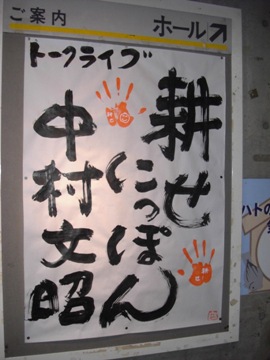 ご案内
ホール↗
トークライブ
耕せ
にっぽん
中村文昭
ハトの